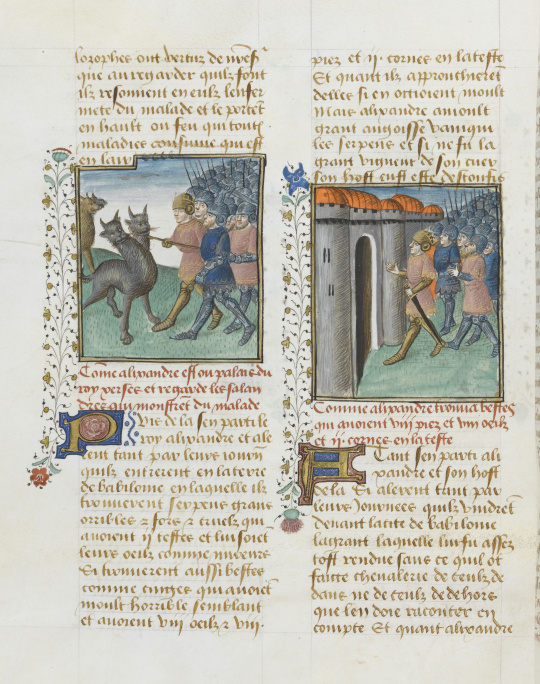 losophes ont vertuz de
que au regarder quilz font
ilz recoiuent en eulz lenfer
mete du malade et le portent
en hault ou feu qui toute
maladies consume qui est
en lair
Come alixandre est ou palais du
roy xerses et regarde les salan
dres qui monstrent du malade
Puis de la sen parti le
roy alixandre et ale
rent tant par leurs iourn
quilz entrerent en la terre
de babilonie en laquelle ilz
trouuerent serpens grans
orribles & fors & cruelz qui
auoient ij testes et luisoiet
leurs oeilz comme
Si trouuerent aussi bestes
comme cinges qui auoiet
moult horrible semblant
et auoient viij oeilz & viij
piez et ij cornes en la teste
Et quant ilz approuchieret
delles si en occioient moult
Mais alixandre a moult
grant angoisse vainqui
les serpens et si ne fu la
grant vigueur de son cuer
son host eust este desconfis
Comme alixandre trouua bestes
qui auoient viij piez et viij oeilz
et ij cornes en la teste
Tant sen parti ali
xandre et son host
de la Si alerent tant par
leurs Journees quilz vindret
deuant la cite de babilonie
la grant laquelle lui fu assez
tost rendue sans ce quil ot
faicte cheualerie de ceulz de
dans ne de ceulz de dehors
que len doie raconter en
compte Et quant alixandre